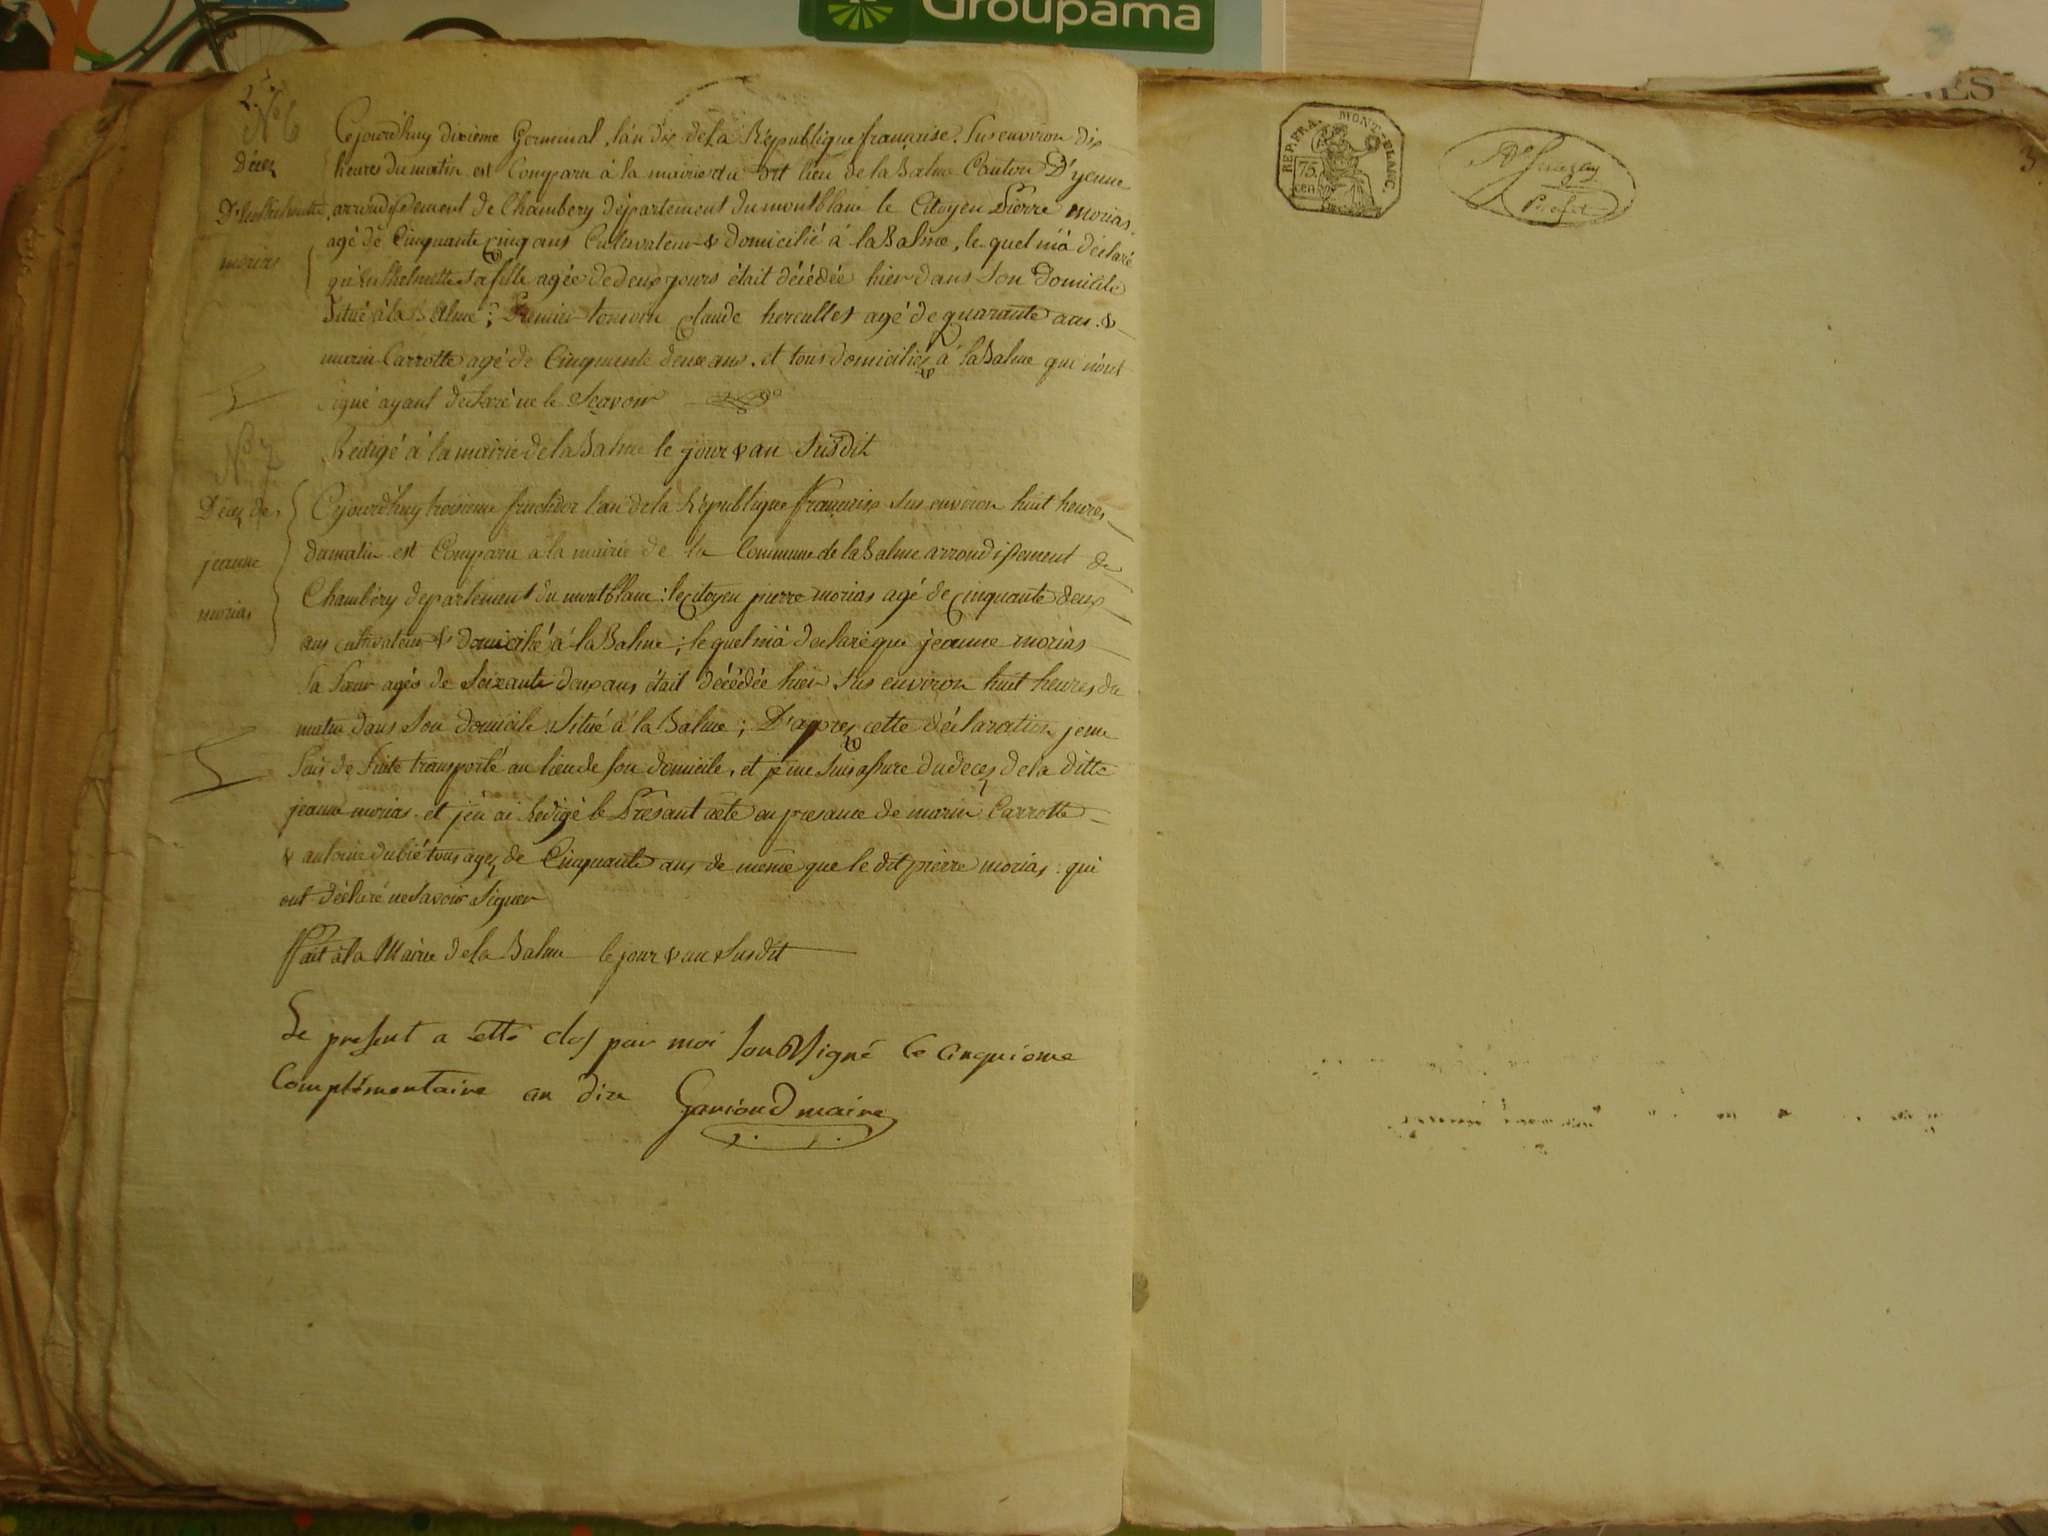 Groupama
2
N° 6
Cejourd'huy dixieme Germinal, l'an dix de la République française. Sus environ dix
Décez
heures du matin est Comparu à la mairie du dit lieu de la Balme Canton D'yenne
arrondissement de Chambery département du montblanc le Citoyen Pierre morias
agé de Cinquante cinq ans Cultivateur & domicilié à la Balme, le quel m'a déclaré
morias
sa fille agée de deux jours était décédée hier dans son Domicile
Situé à la Balme; Claude hercullet agé de quarante ans &
marin Carrotte agé de Cinquante deux ans. et tous domiciliés à la Balme qui n'ont
signé ayant déclaré ne le Scavoir
N° 7
Redigé à la mairie de la Balme le jour & an Susdit
Décez de
Cejourd'huy troisieme fructidor l'an de la République française Sus environ huit heures
du matin est Comparu a la mairie de la Commune de la Balme arrondissement de
jeanne
Chambéry departement du montblanc: le citoyen pierre morias agé de cinquante deux
morias
ans cultivateur & domicilié à la Balme; le quel m'à declaré que jeanne morias
Sa Sœur agée de Soixante deux ans était décédée hier Sus environ huit heures du
matin dans Son domicile Situé à la Balme; D'apres cette déclaration je me
Suis de Suite transporté au lieu de Son domicile, et je me Suis assure du decez de la ditte
jeanne morias. et j'en ai Redigé le Présant acte en presance de marin Carrotte
& antoine dubié tous agez de Cinquante ans de même que le dit pierre morias: qui
ont déclaré ne Savoir Signer
Fait à la Mairie de la Balme le jour & an Susdit
Le present a étté clos par moi Soussigné le cinquieme
Complémentaire an dix Garioud maire
REP. FRA. MONT-BLANC.
75
cen
3